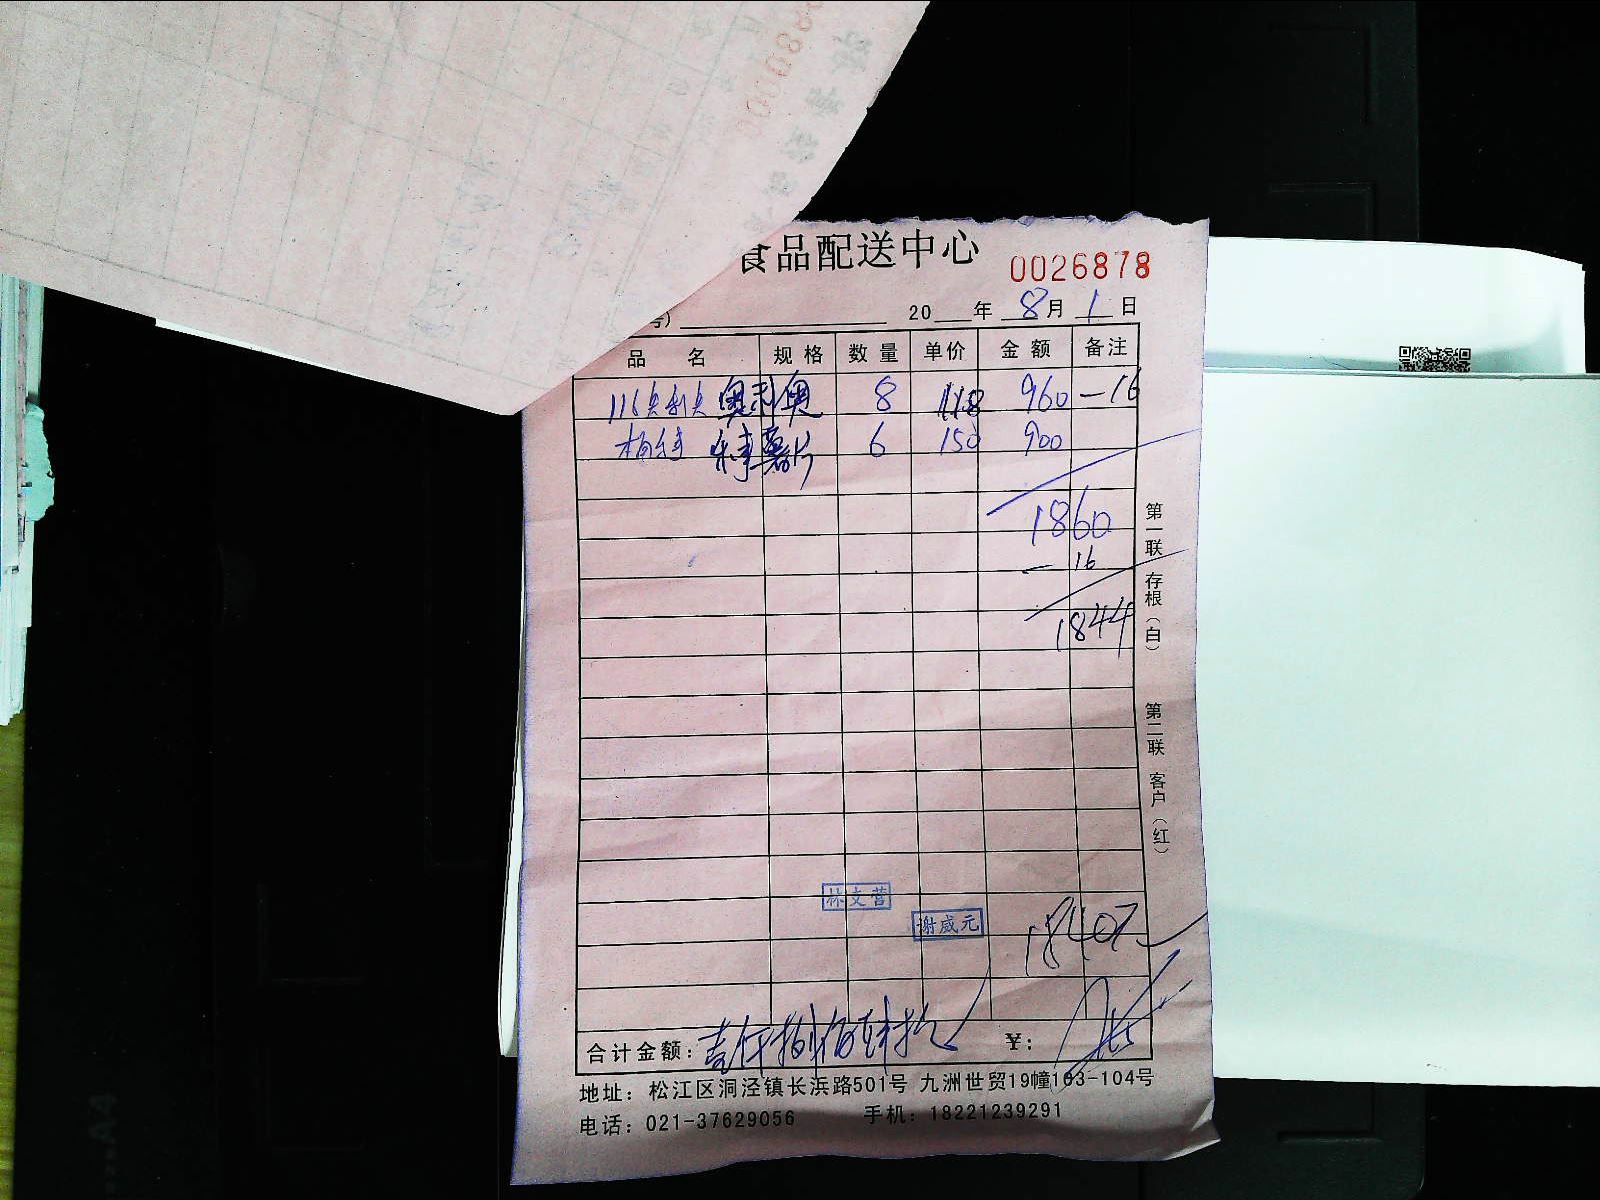 食品配送中心
0026878
号) 20 年 8 月 1 日
品 名 规 格 数 量 单价 金 额 备注
116奥利奥 奥利奥 8 118 960 -16
薯片 6 150 900
1860
- 16
1844
第一联 存根（白）
第二联 客户（红）
林文营
谢威元
1840元
合计金额: 壹仟捌佰肆拾元 ¥:
地址: 松江区洞泾镇长浜路501号 九洲世贸19幢103-104号
电话: 021-37629056 手机: 18221239291
A4